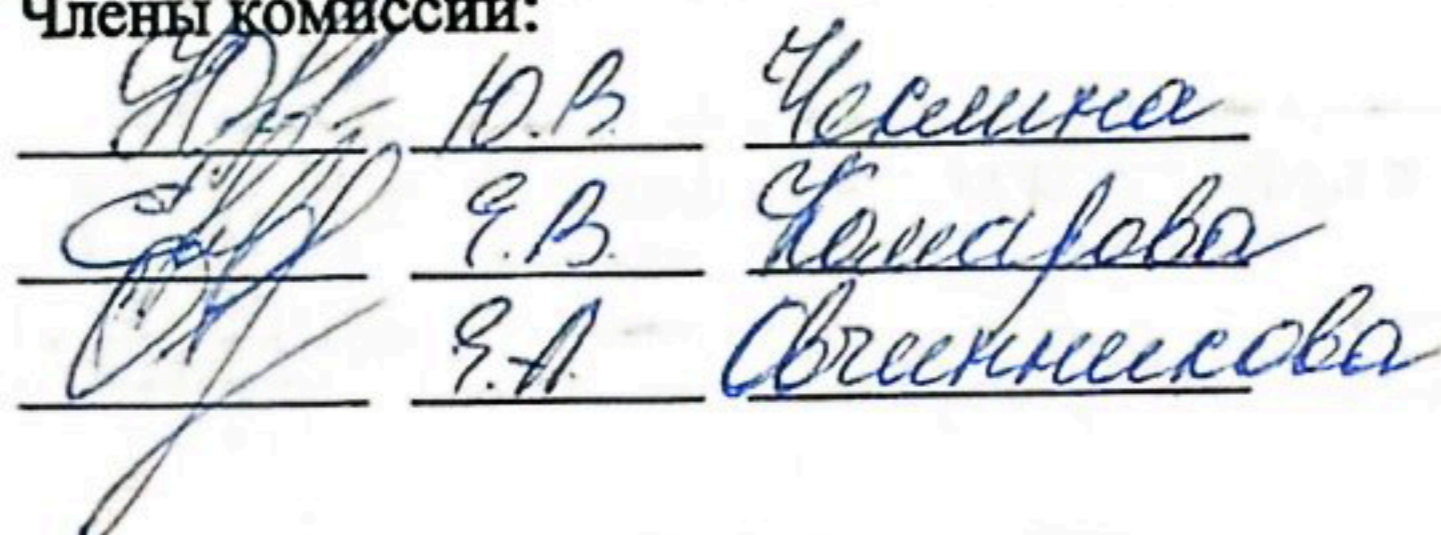 Члены комиссии:
Ю.В. Чесмина
Е.В. Комарова
Е.А. Овчинникова